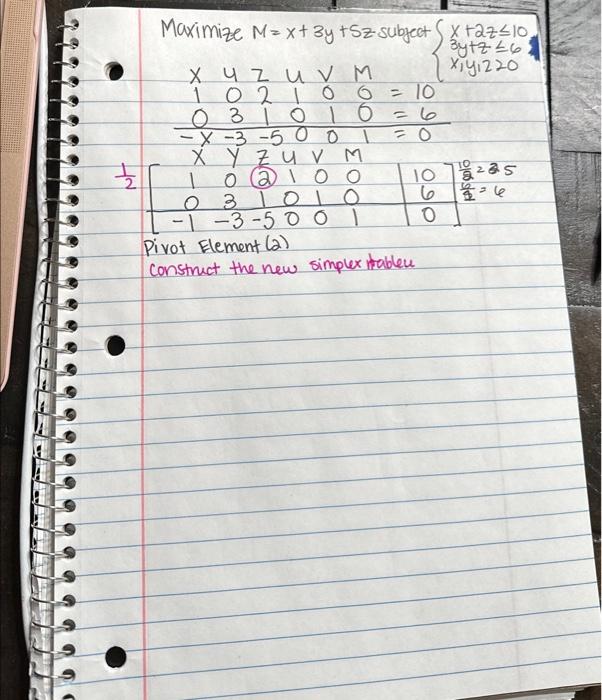 Maximize M = x + 3y + 5z subject { x + 2z ≤ 10
3y + z ≤ 6
x, y, z ≥ 0
X Y Z u V M
1 0 2 1 0 0 = 10
0 3 1 0 1 0 = 6
-x -3 -5 0 0 1 = 0
X Y Z u V M
1/2 [ 1 0 2 1 0 0 | 10 ] 10/2 = 5
0 3 1 0 1 0 | 6 6/1 = 6
-1 -3 -5 0 0 1 | 0
Pivot Element (2)
Construct the new simplex tableu